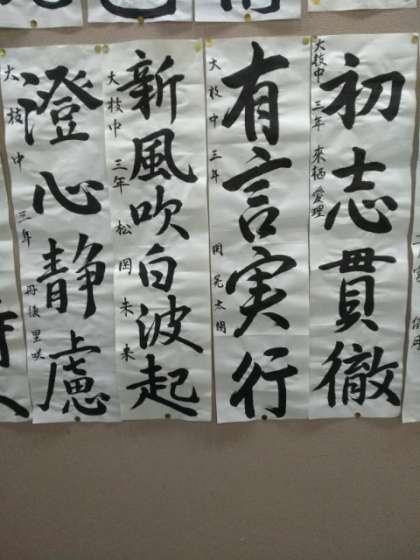 初志貫徹
大枝中 三年 來栖 愛理
有言実行
大枝中 三年 岡 晃太朗
新風吹白波起
大枝中 三年 松岡 未来
澄心静慮
大枝中 三年 丹後 里咲